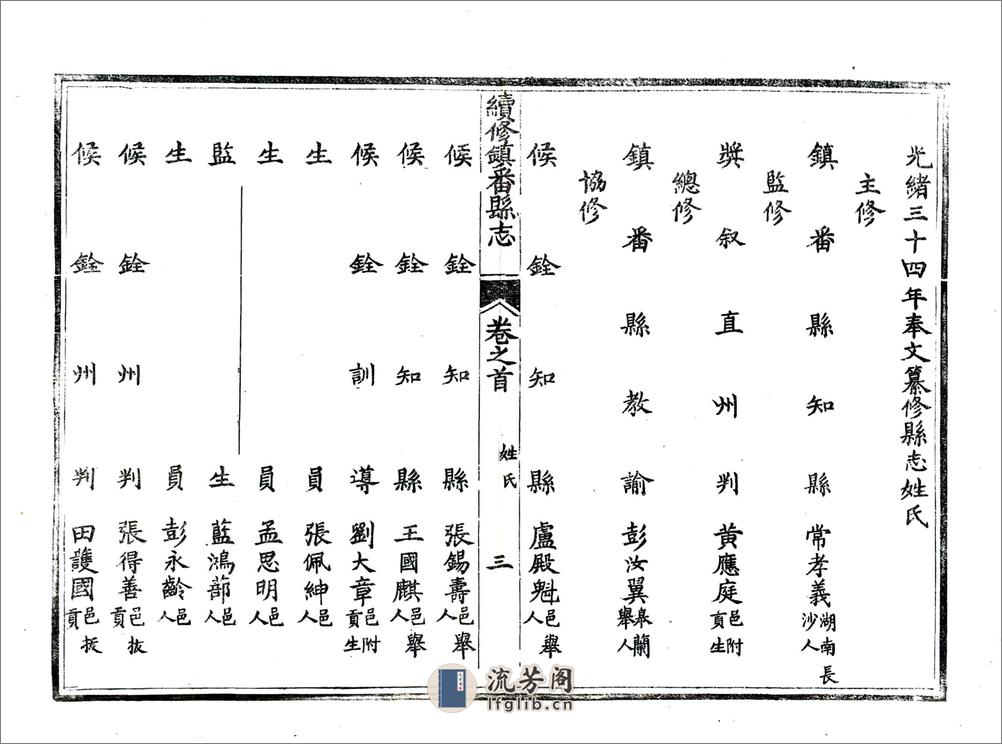 光緒三十四年奉文纂修縣志姓氏
主修
鎮番縣知縣常孝義湖南長沙人
監修
獎敘直州判黃應庭邑附貢生
總修
鎮番縣教諭彭汝翼皋蘭舉人
協修
候銓知縣盧殿魁邑舉人
續修鎮番縣志
卷之首
姓氏
三
候銓知縣張錫壽邑舉人
候銓知縣王國麒邑舉人
候銓訓導劉大章邑附貢生
生員張佩紳邑人
生員孟思明邑人
監生藍鴻邑人
生員彭永齡邑人
候銓州判張得善邑拔貢
候銓州判田護國邑拔貢
流芳阁
lfglib.cn